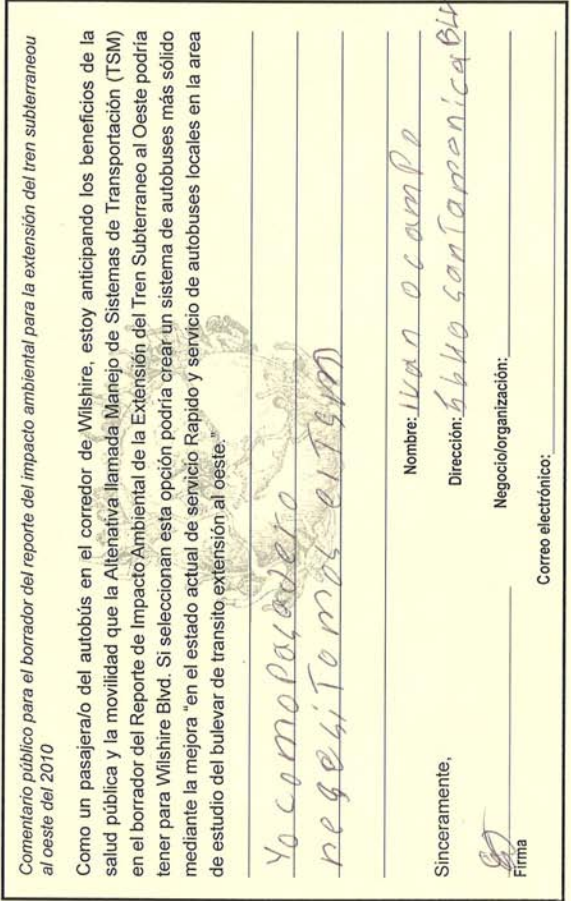 Comentario público para el borrador del reporte del impacto ambiental para la extensión del tren subterraneou
al oeste del 2010
Como un pasajera/o del autobús en el corredor de Wilshire, estoy anticipando los beneficios de la
salud pública y la movilidad que la Alternativa llamada Manejo de Sistemas de Transportación (TSM)
en el borrador del Reporte de Impacto Ambiental de la Extensión del Tren Subterraneo al Oeste podría
tener para Wilshire Blvd. Si seleccionan esta opción podría crear un sistema de autobuses más sólido
mediante la mejora "en el estado actual de servicio Rapido y servicio de autobuses locales en la area
de estudio del bulevar de transito extensión al oeste."
Yo como Pasadero
negesiTomos el TSM
Sinceramente,
Firma
Nombre: Ivan ocampo
Dirección: santamonica BLV
Negocio/organización:
Correo electrónico: